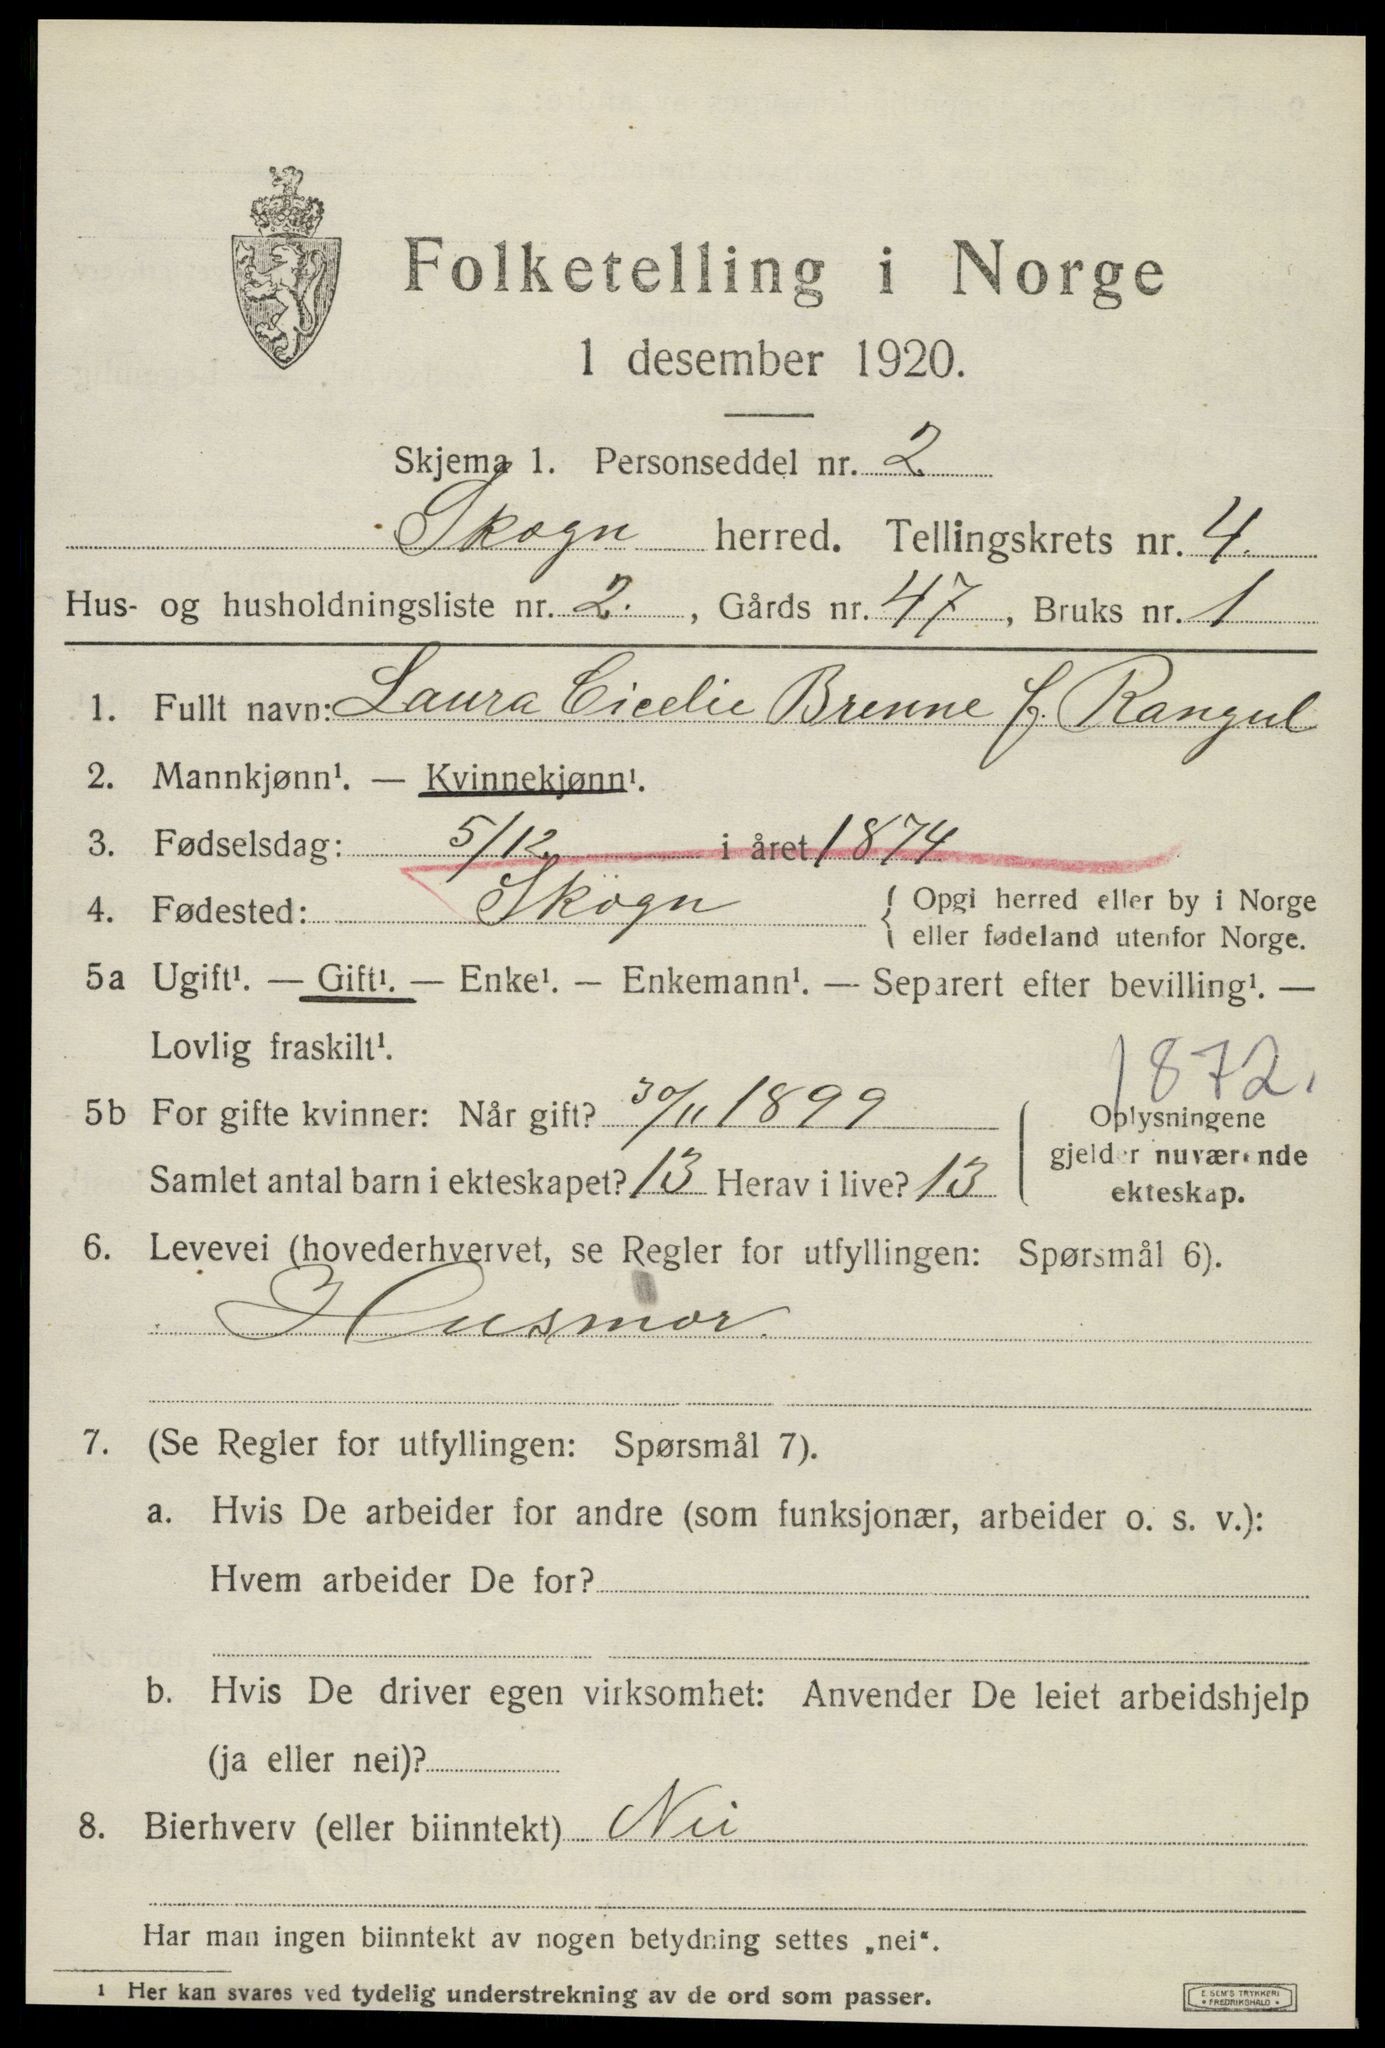 Folketelling i Norge
1 desember 1920.
Skjema 1. Personseddel nr. 2
Skogn herred. Tellingskrets nr. 4.
Hus- og husholdningsliste nr. 2. , Gårds nr. 47 , Bruks nr. 1
1. Fullt navn: Laura Cicelie Brenne f. Rangul
2. Mannkjønn¹. — Kvinnekjønn¹.
3. Fødselsdag: 5/12. i året 1874
4. Fødested: Skogn { Opgi herred eller by i Norge
eller fødeland utenfor Norge.
5a Ugift¹. — Gift¹. — Enke¹. — Enkemann¹. — Separert efter bevilling¹. —
Lovlig fraskilt¹.
1872.
5b For gifte kvinner: Når gift? 30/11 1899
Samlet antal barn i ekteskapet? 13 Herav i live? 13
Oplysningene
gjelder nuværende
ekteskap.
6. Levevei (hovederhvervet, se Regler for utfyllingen: Spørsmål 6).
Husmor.
7. (Se Regler for utfyllingen: Spørsmål 7).
a. Hvis De arbeider for andre (som funksjonær, arbeider o. s. v.):
Hvem arbeider De for?
b. Hvis De driver egen virksomhet: Anvender De leiet arbeidshjelp
(ja eller nei)?
8. Bierhverv (eller biinntekt) Nei
Har man ingen biinntekt av nogen betydning settes „nei“.
1 Her kan svares ved tydelig understrekning av de ord som passer.
E. SEM'S TRYKKERI
• FREDRIKSHALD •